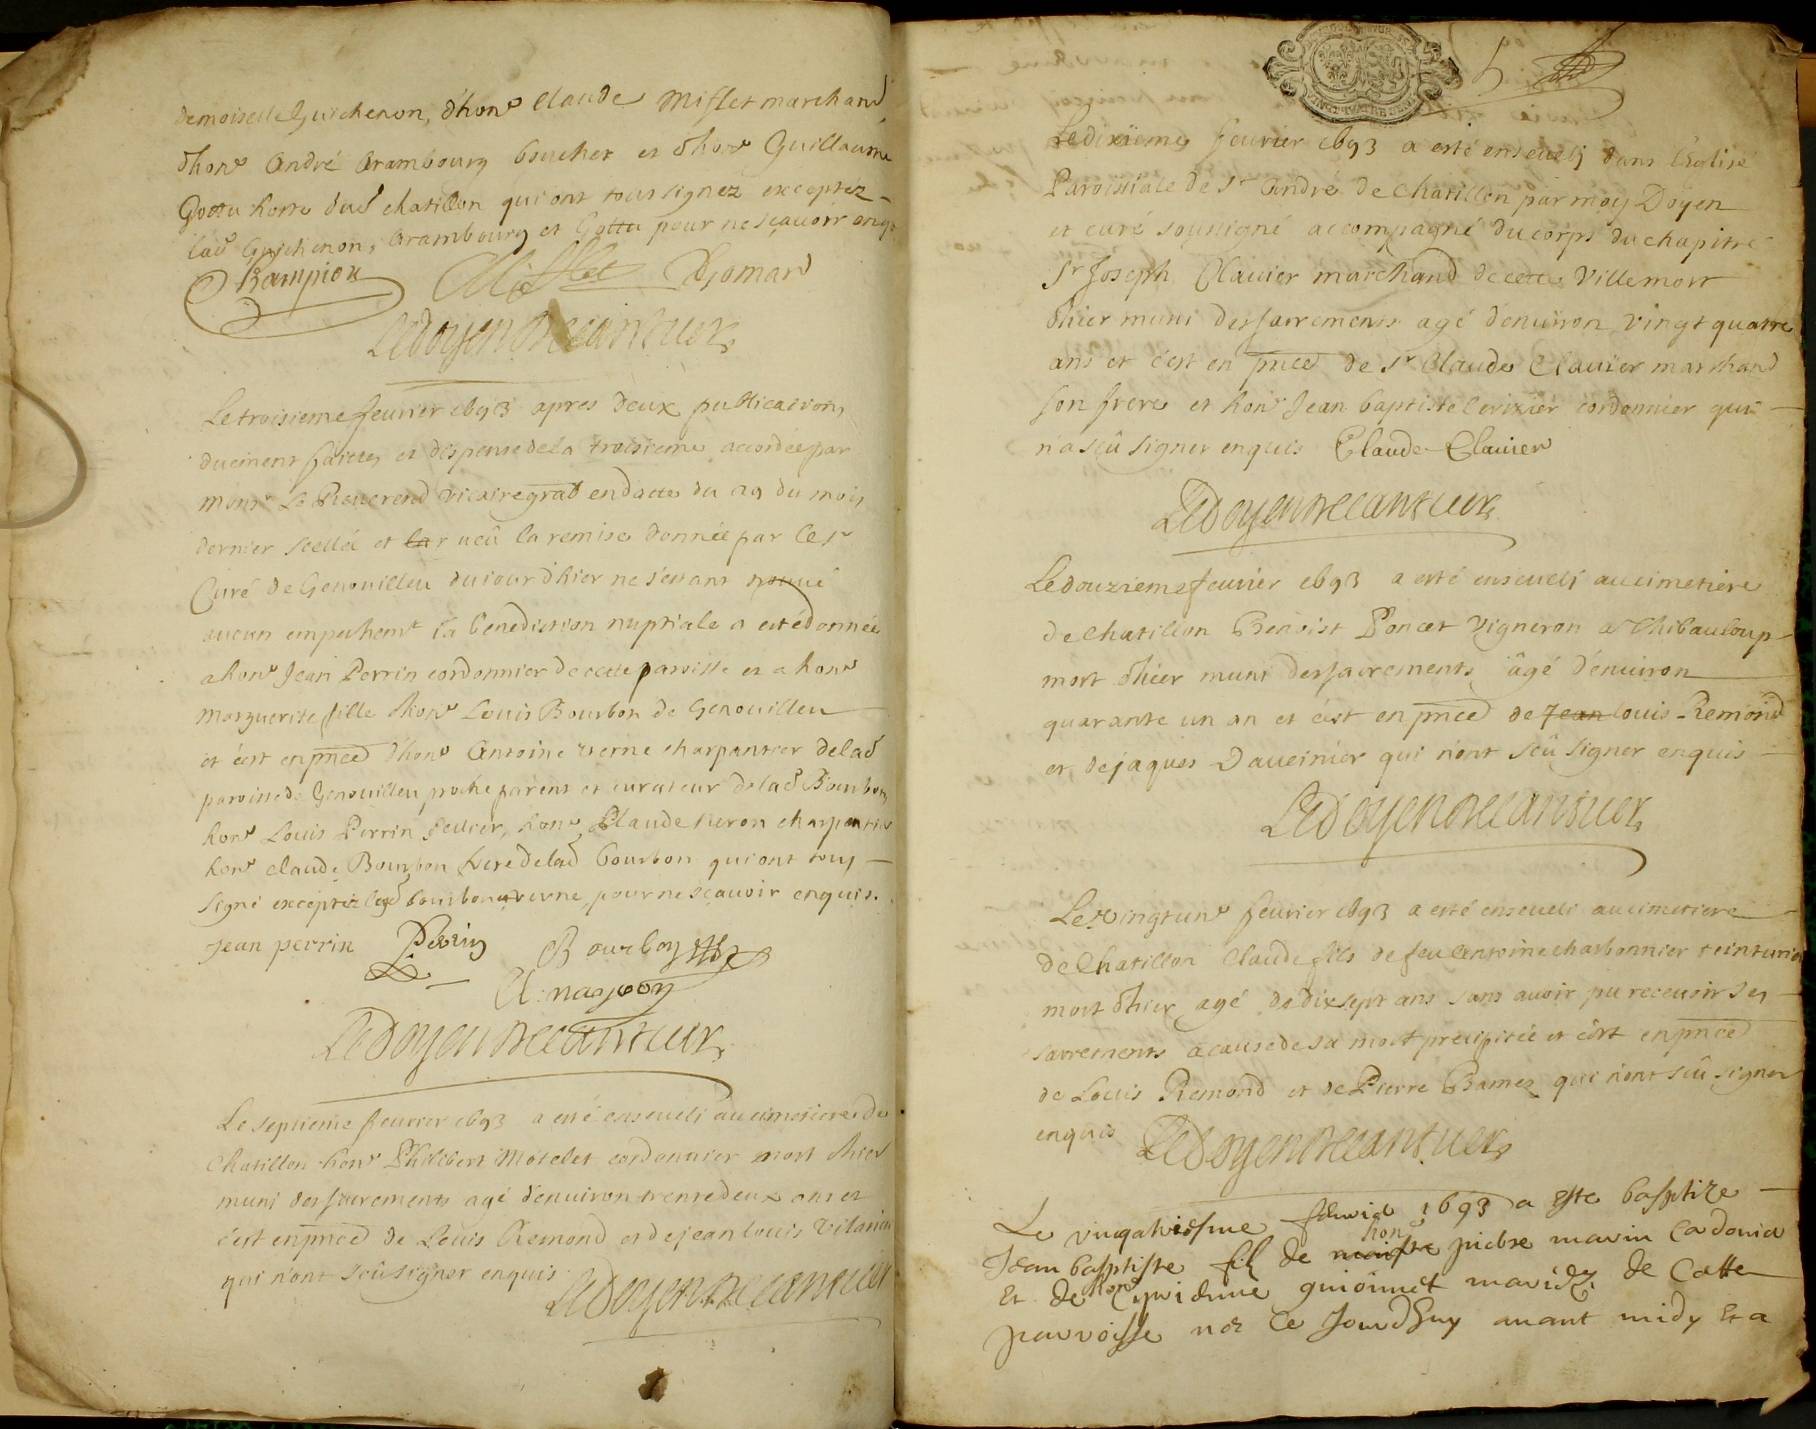 demoiselle Guichenon, d'hon^e Claude Misslet marchand
d'hon^e André Arambourg boucher et d'hon^e Guillaume
Gottu horre dud chatillon qui ont tous signez exceptez
lad Guichenon, Arambourg et Gottu pour ne scavoir enq^s
Champion Misslet Gomard
Ledoyen
Le troisieme fevrier 1693 apres deux publications
duement faites et dispense de la troisieme accordée par
Mons^r Le Reverend vicaire gral en datte du 29 du mois
dernier scellée et la r veû la remise donnée par le s^r
Curé de Genouilleu du jour d'hier ne s'estant trouvé
aucun empechem^t la benediction nuptiale a esté donnée
a hon^e Jean Perrin cordonnier de cette paroisse et a hon^e
Marguerite fille d'hon^e Louis Bourbon de Genouilleu
et c'est en pnce d'hon^e Antoine verne charpantier de lad
paroisse de Genouilleu proche parent et curateur de lad Bourbon
hon^e Louis Perrin sellier, hon^e Claude neron charpentier
hon^e claude Bourbon frere de lad bourbon qui ont tous
signé exceptez lesd bourbon et verne pour ne scavoir enquis.
Jean perrin Perrin Bourbon
Ledoyen
Le septieme fevrier 1693 a esté enseveli au cimetiere de
Chatillon hon^e Philibert Motelet cordonnier mort d'hier
muni des sacrements agé d'environ trente deux ans et
c'est en pnce de Louis Remond et de jean louis
qui n'ont sceû signer enquis Ledoyen
Le dixieme fevrier 1693 a esté enseveli dans l'Eglise
Paroissiale de s^t André de Chatillon par moy Doyen
et curé soussigné accompagné du corps du chapitre
s^r Joseph Clavier marchand de cette Ville mort
d'hier muni des sacrements agé d'environ vingt quatre
ans et c'est en pnce de s^r Claude Clavier marchand
son frere et hon^e Jean baptiste Cerizier cordonnier qui
n'a sceû signer enquis Claude Clavier
Ledoyen
Le douzieme fevrier 1693 a esté enseveli au cimetiere
de Chatillon Benoist Poncet Vigneron a Chibauloup
mort d'hier muni des sacrements âgé d'environ
quarante un an et c'est en pnce de Jean louis Remond
et de jaques Daveinier qui n'ont sceû signer enquis
Ledoyen
Le vingtun^e fevrier 1693 a esté enseveli au cimetiere
de Chatillon Claude fils de feu Antoine charbonnier teinturier
mort d'hier agé de dix sept ans sans avoir pu recevoir ses
sacrements a cause de sa mort precipitée et c'est en pnce
de Louis Remond et de Pierre Bamez qui n'ont sceû signer
enquis Ledoyen
Le fevrier 1693 a este baptize
Jean baptiste filz de maistre hon^e pierre marin
Et de hon^e guionnet mariez de Cette
parroisse nez Ce Jourdhuy avant midy Et a